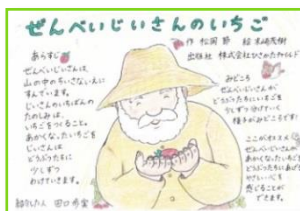 ぜんべいじいさんのいちご
作 松岡 節 絵 末崎茂樹
出版社 株式会社ひさかたチャイルド
あらすじ
ぜんべいじいさんは、
山の中のちいさないえに
すんでいます。
じいさんのいちばんの
たのしみは、
いちごをつくること。
あかくなったいちごを
じいさんは
どうぶつたちに
少しずつ
わけていきます。
みどころ
ぜんべいじいさんが
どうぶつたちにいちごを
少しずつ分けていく
様子がみどころです!
ここがオススメ
ぜんべいじいさんの
あかくなったいちごを
どうぶつたちにあげる
やさしい心を
感じることが
できます。
紹介した人 田口